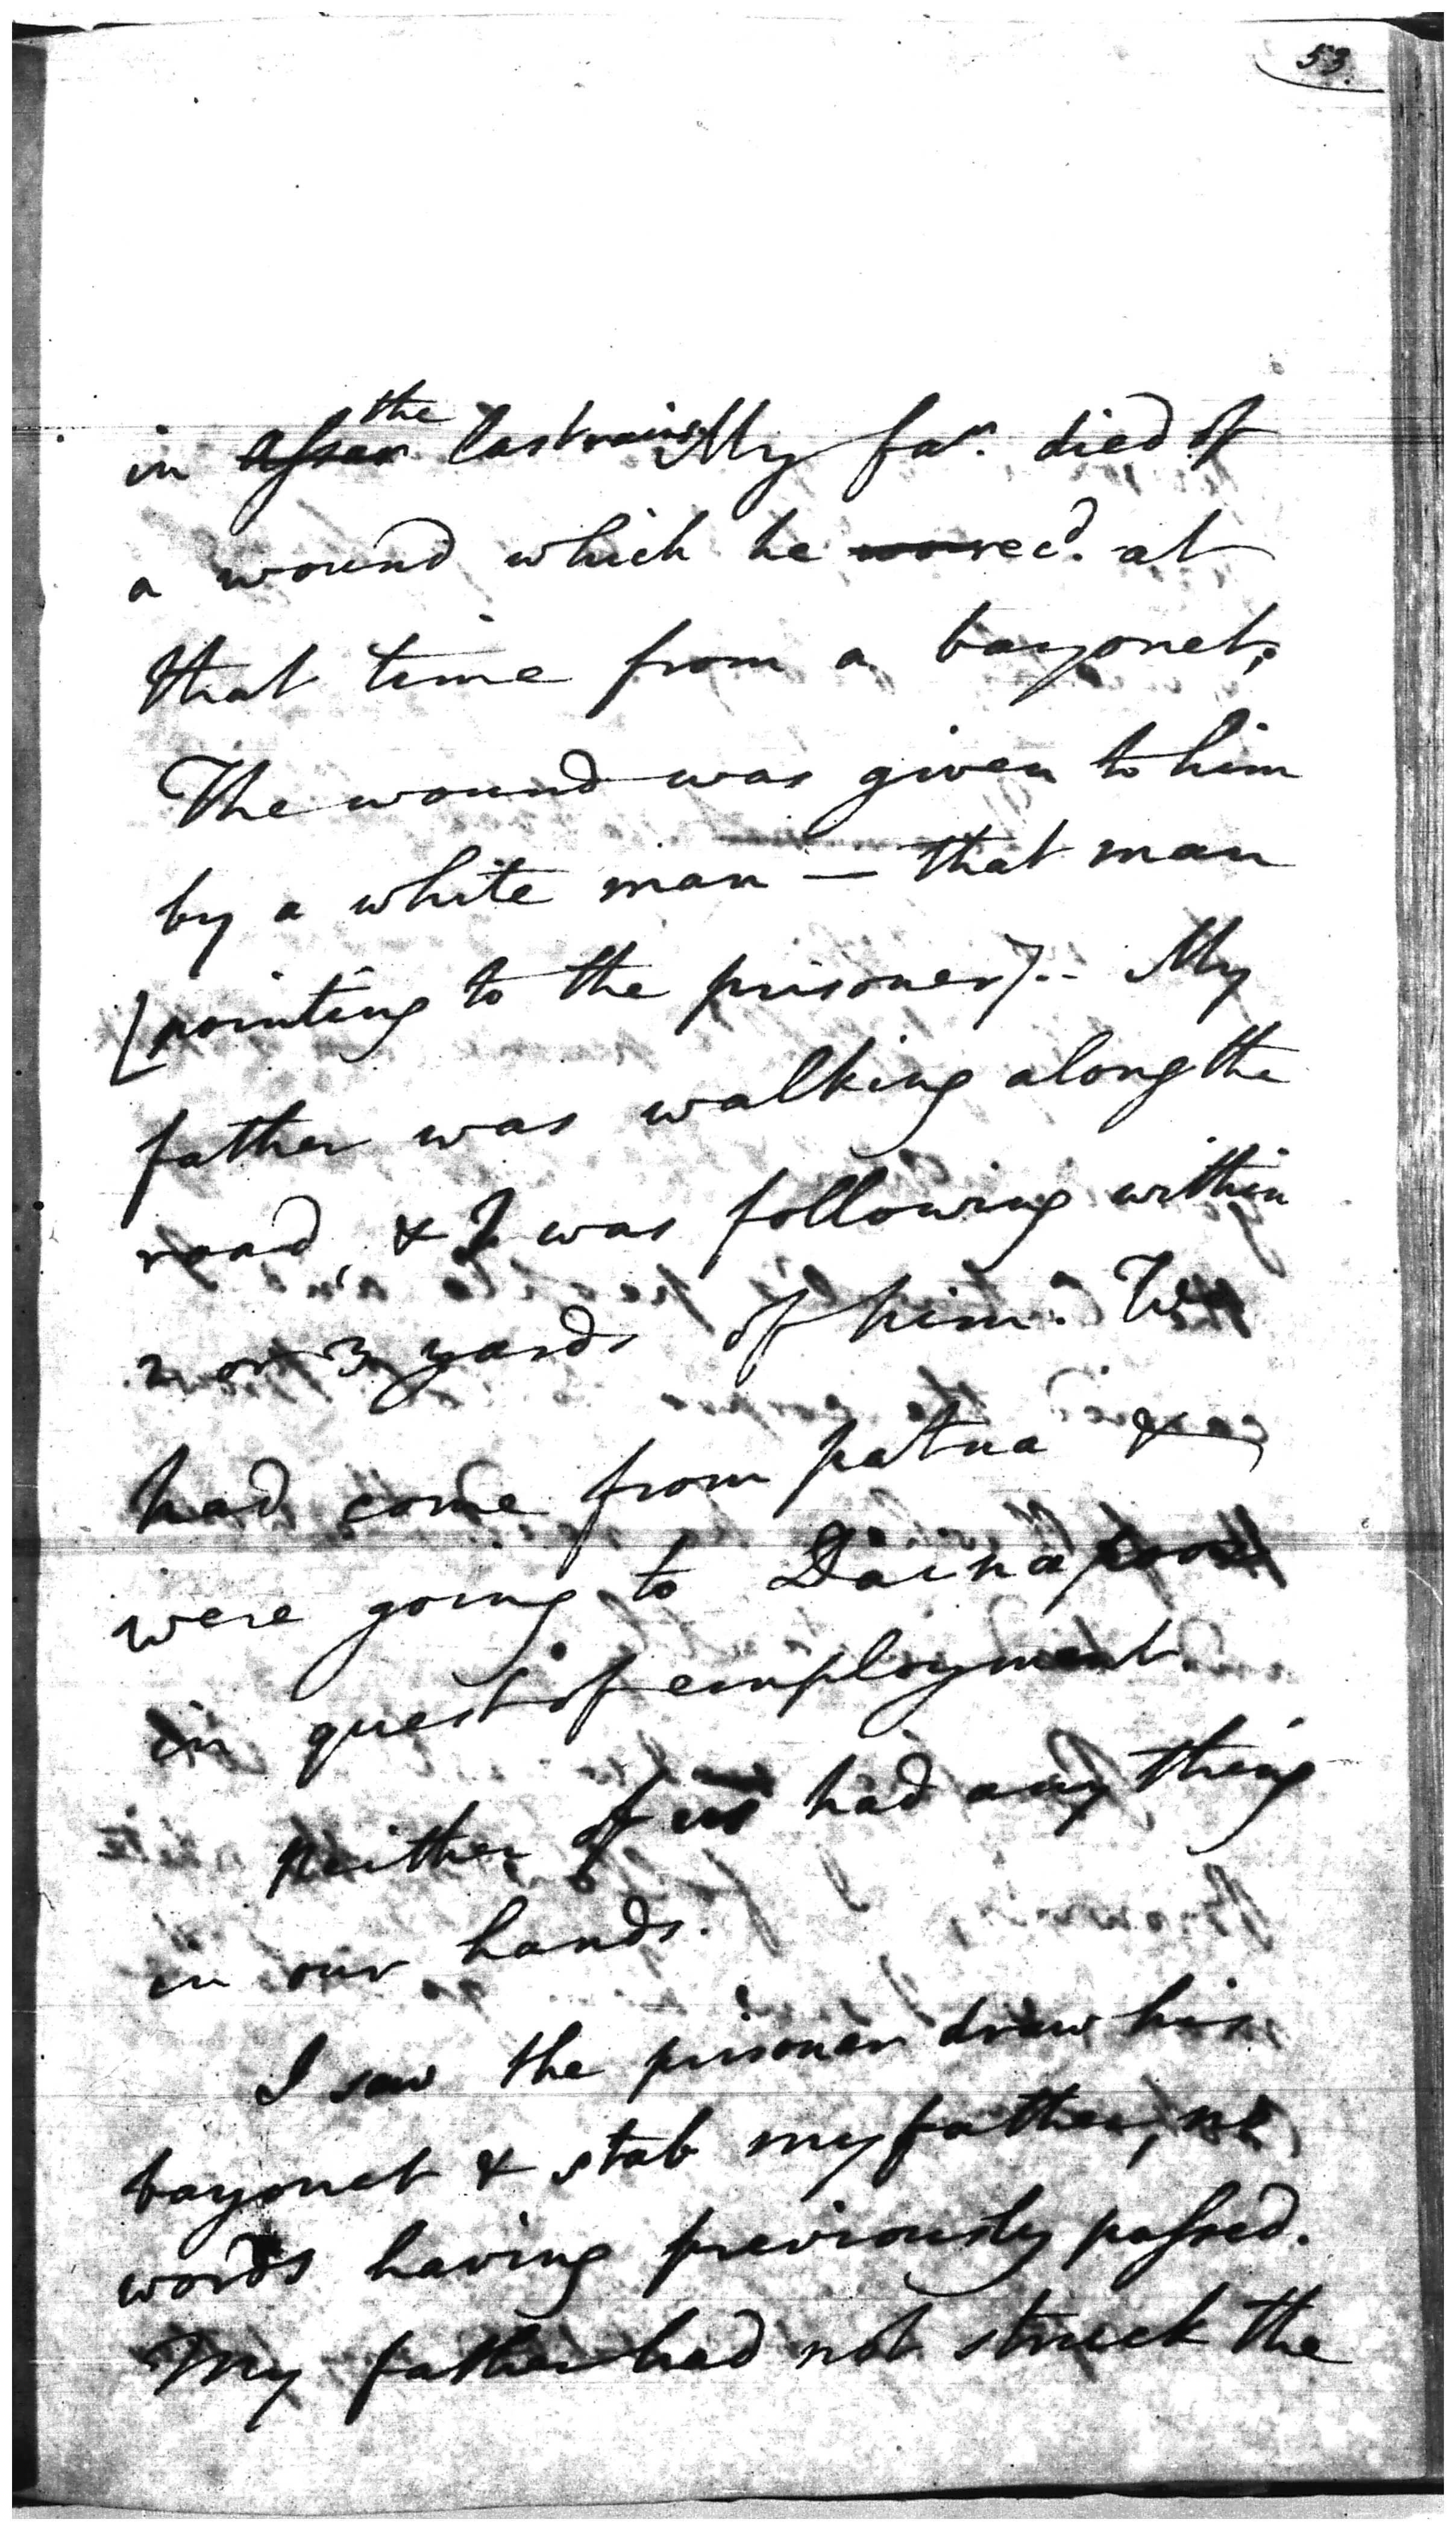 53.
the
in Assar last rains My far. died of
a wound which he recd. at
that time from a bayonet;
The wound was given to him
by a white man — that man
[pointing to the prisoner]. - My
father was walking along the
road, & I was following within
2 or 3 yards of him. We
had come from patna &
were going to Dainapoor
in quest of employment.
Neither of us had any thing
in our hands.
I saw the prisoner draw his
bayonet & stab my father, no
words having previously passed.
My father had not struck the